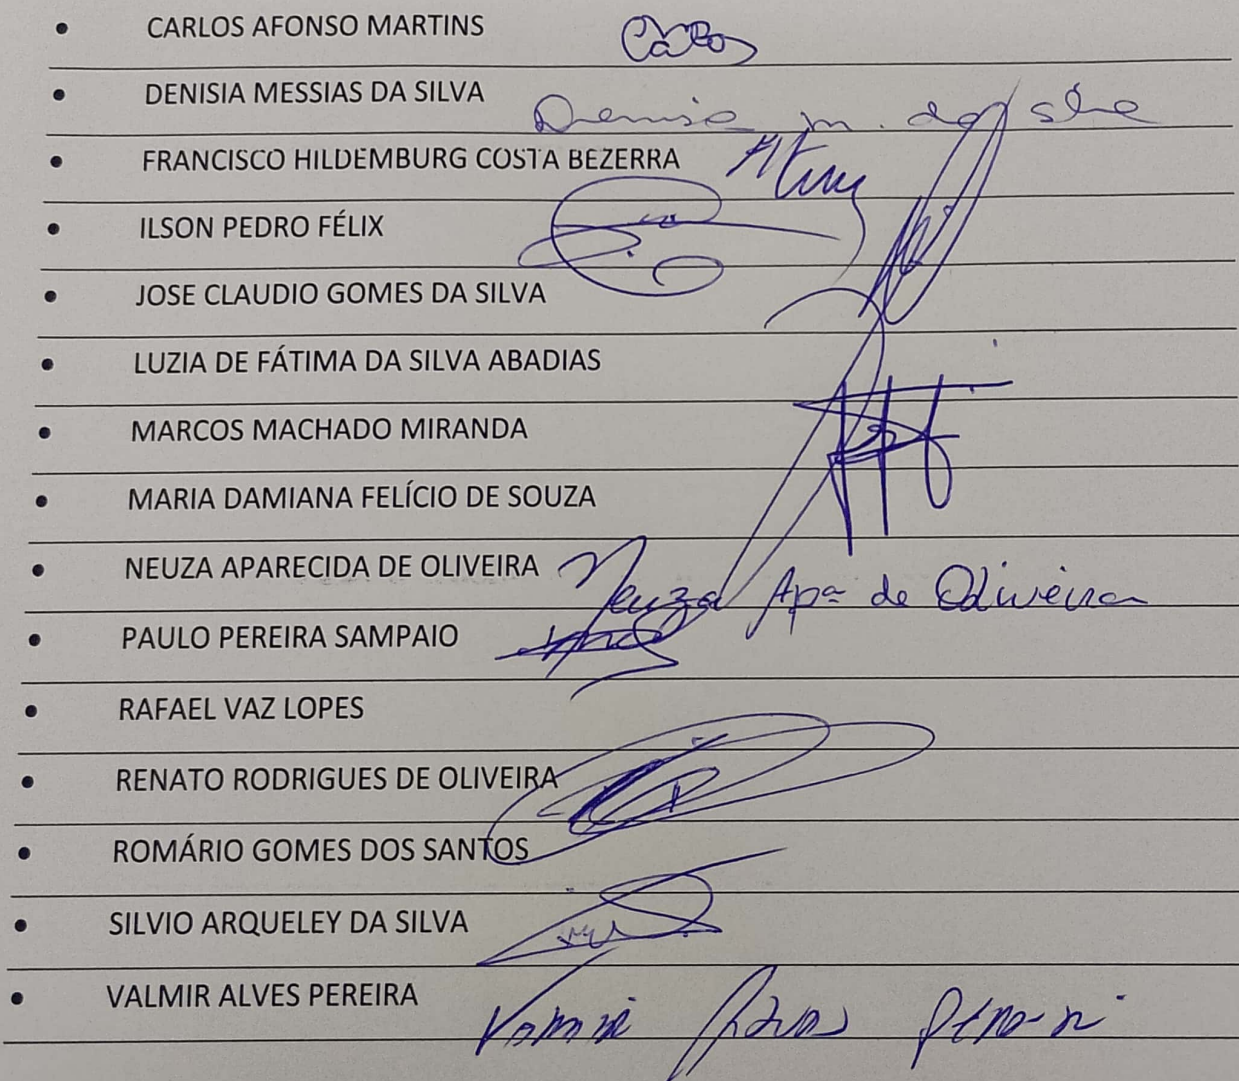 • CARLOS AFONSO MARTINS Carlos
• DENISIA MESSIAS DA SILVA Denisia m. da silva
• FRANCISCO HILDEMBURG COSTA BEZERRA
• ILSON PEDRO FÉLIX
• JOSE CLAUDIO GOMES DA SILVA
• LUZIA DE FÁTIMA DA SILVA ABADIAS
• MARCOS MACHADO MIRANDA
• MARIA DAMIANA FELÍCIO DE SOUZA
• NEUZA APARECIDA DE OLIVEIRA Neuza Apª de Oliveira
• PAULO PEREIRA SAMPAIO
• RAFAEL VAZ LOPES
• RENATO RODRIGUES DE OLIVEIRA
• ROMÁRIO GOMES DOS SANTOS
• SILVIO ARQUELEY DA SILVA
• VALMIR ALVES PEREIRA